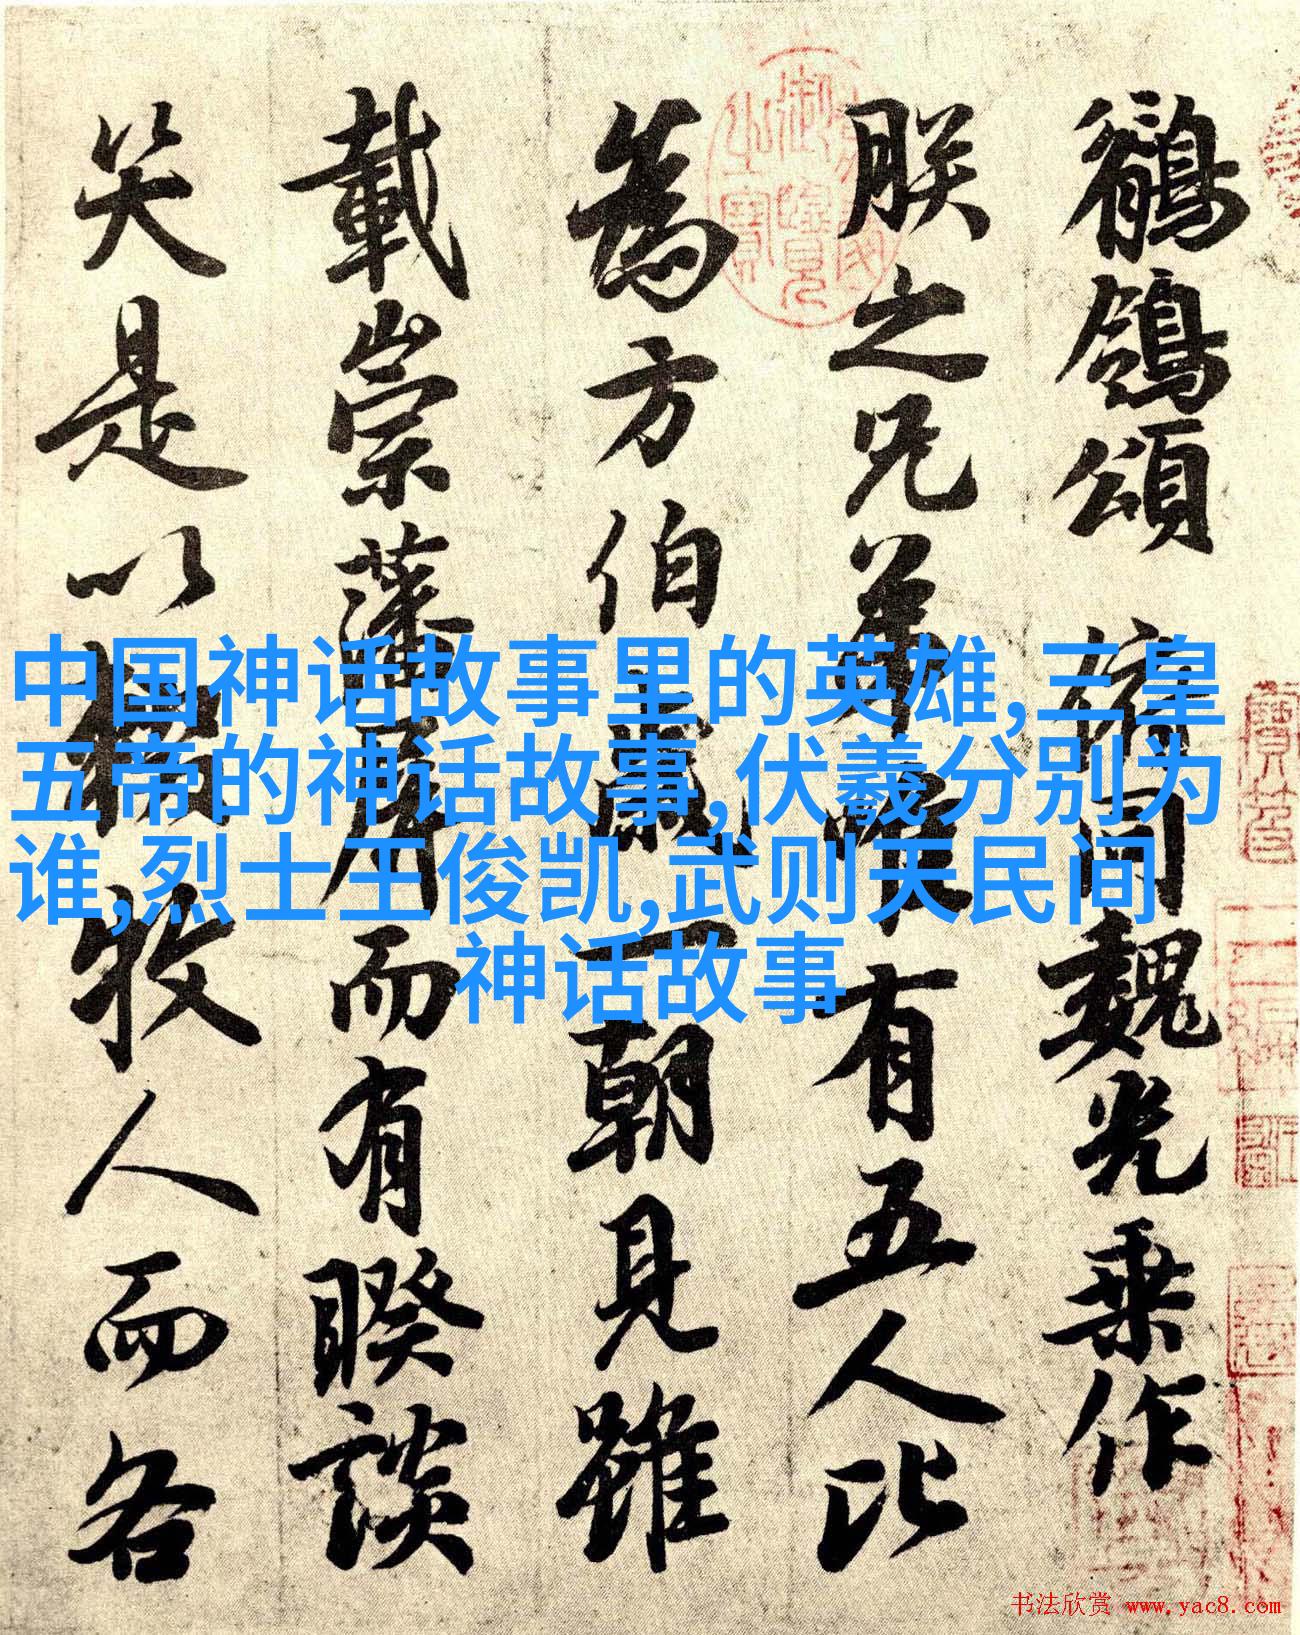 鶺鴒頌 俯同魏光乘作
朕之兄弟唯有五人比
為方伯歲一朝見雖
載崇藩屏而有睽談
笑是以輟牧人而各
中国神话故事里的英雄,三皇
五帝的神话故事,伏羲分别为
谁,烈士王俊凯,武则天民间
神话故事
书法欣赏 www.yac8.com